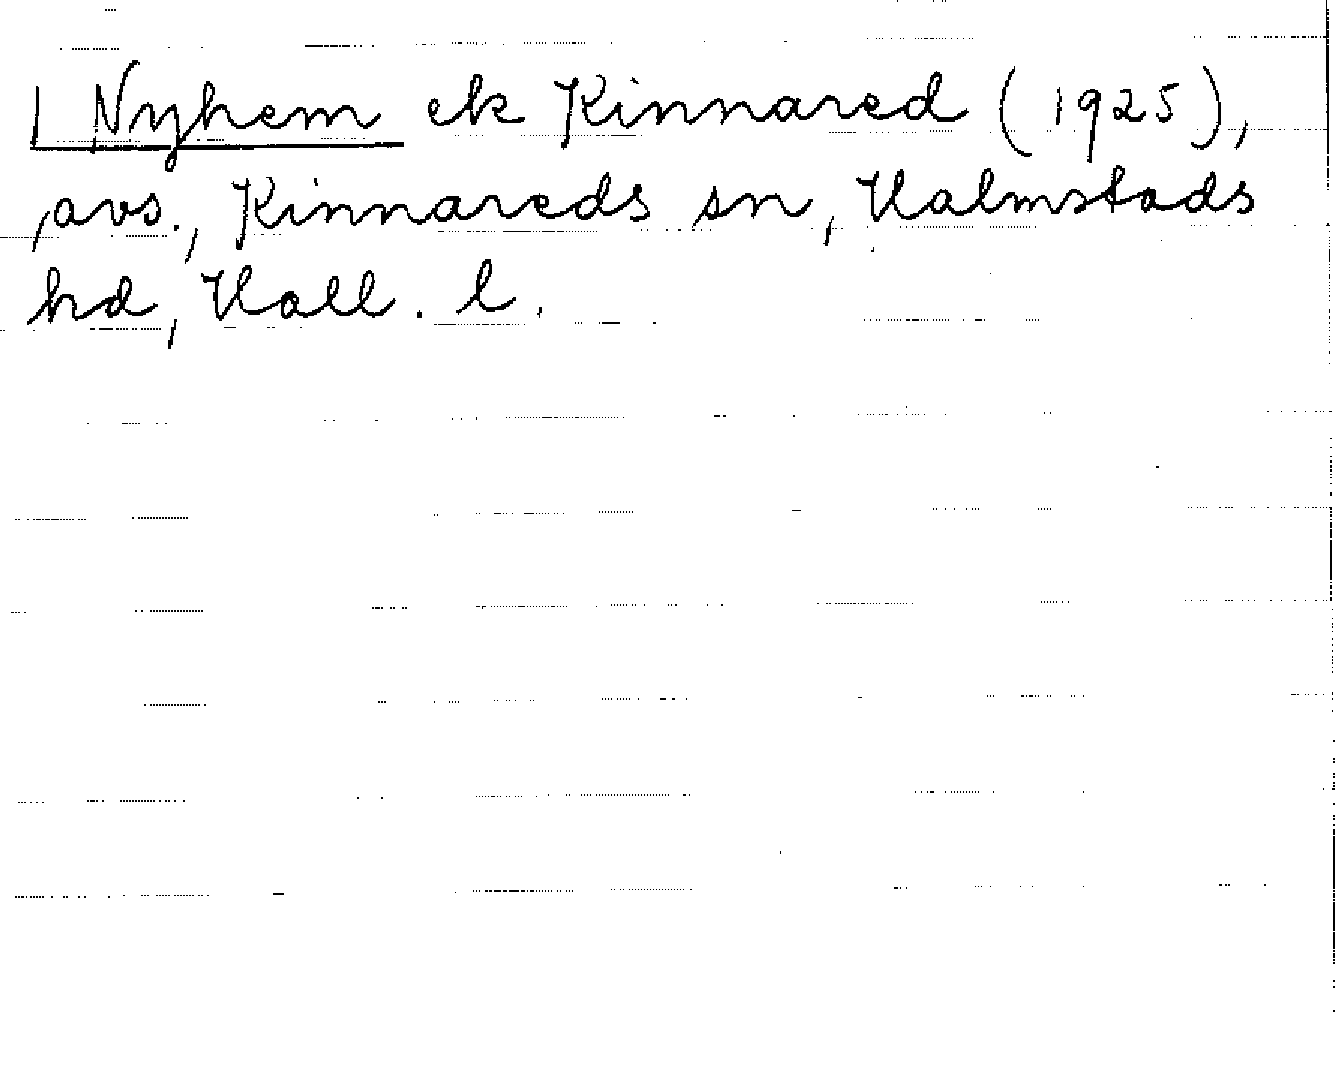 | Nyhem ek Kinnared (1925),
avs., Kinnareds sn, Halmstads
hd, Hall. l.